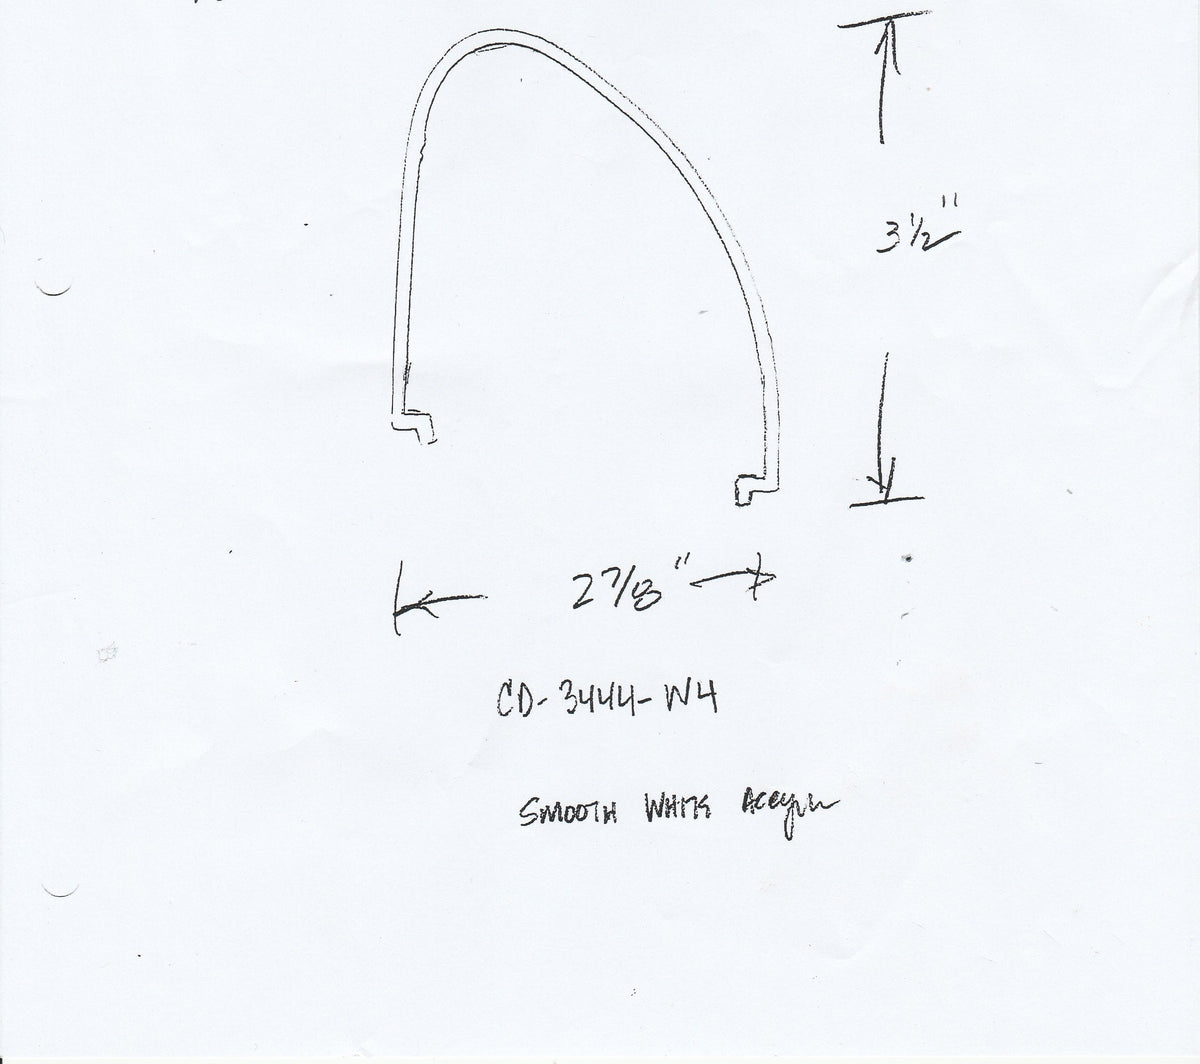 3 1/2"
2 7/8"
CD-3444-W4
SMOOTH WHITE Acrylic